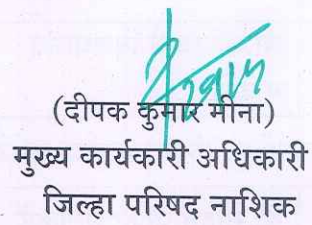 (दीपक कुमार मीना)
मुख्य कार्यकारी अधिकारी
जिल्हा परिषद नाशिक